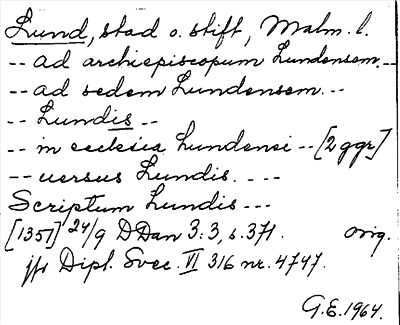 Lund, stad o. stift, Malm. l.
-- ad archiepiscopum Lundensem. --
-- ad sedem Lundensem. --
-- Lundis --
-- in ecclesia Lundensi -- [2 ggr]
-- uersus Lundis. - - -
Scriptum Lundis ---
[1351] 24/9 DDan 3:3, s. 371. orig.
jfr Dipl. Svec. VI 316 nr. 4747.
G.E. 1964.